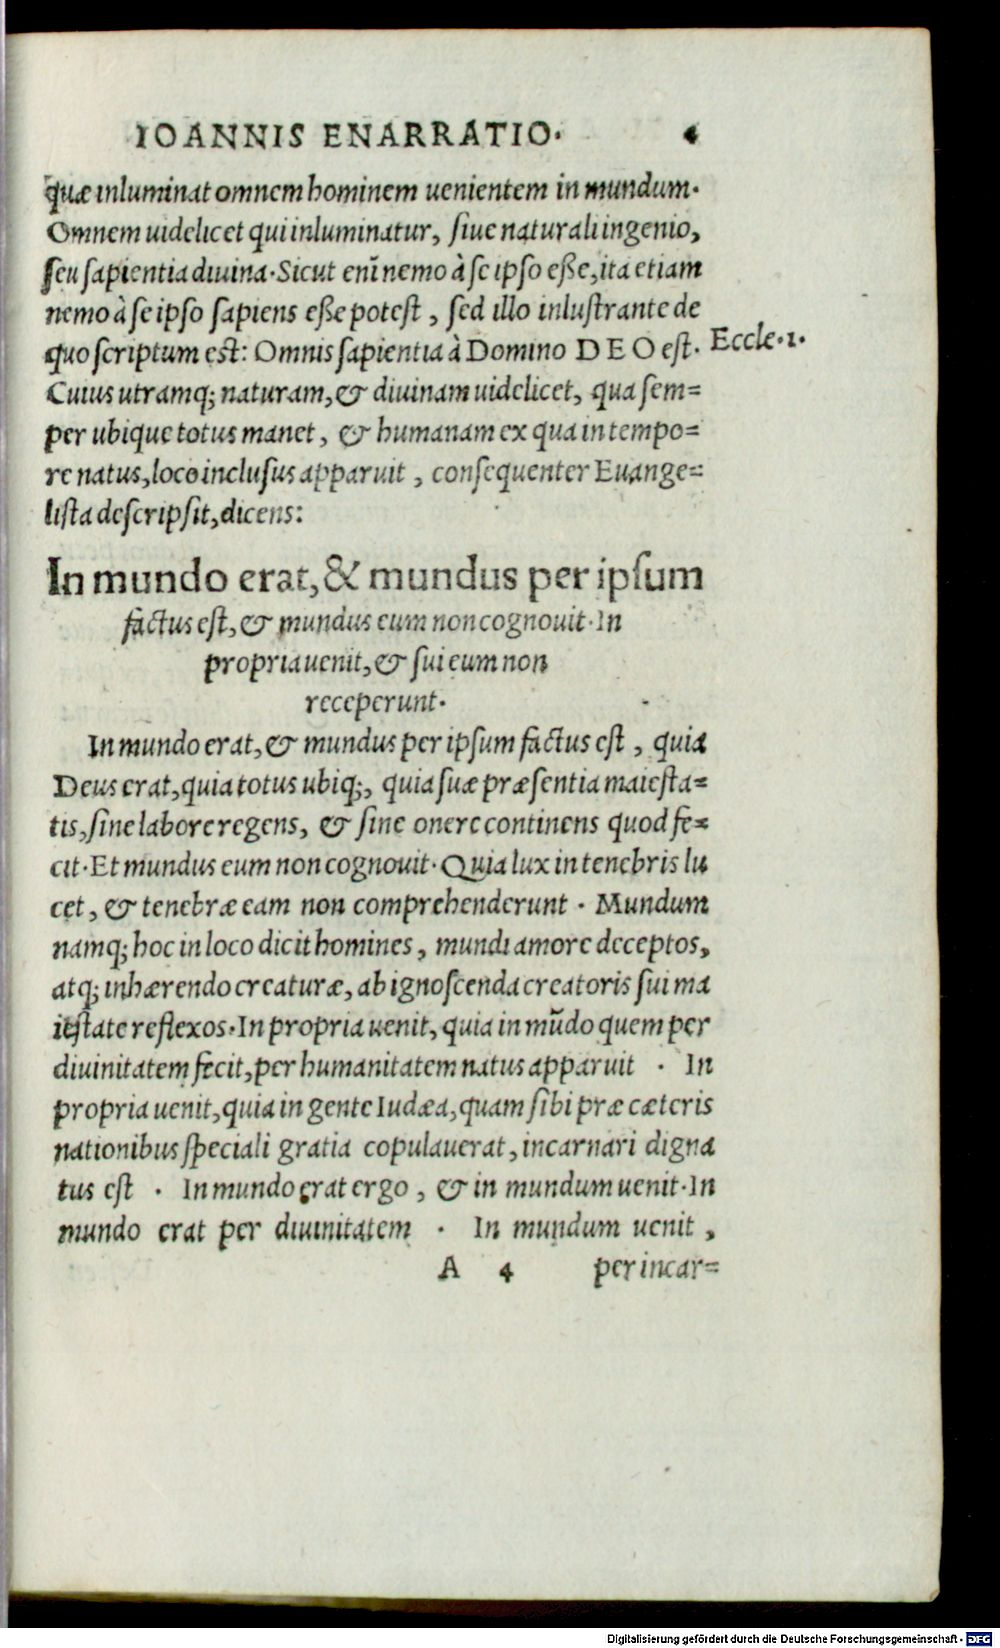 IOANNIS ENARRATIO. 4
quæ inluminat omnem hominem uenientem in mundum.
Omnem uidelicet qui inluminatur, ſiue naturali ingenio,
ſeu ſapientia diuina. Sicut enĩ nemo à ſe ipſo eſſe, ita etiam
nemo à ſe ipſo ſapiens eſſe poteſt, ſed illo inluſtrante de
quo ſcriptum eſt: Omnis ſapientia à Domino DEO eſt. Eccle.1.
Cuius utramq; naturam, & diuinam uidelicet, qua ſem=
per ubique totus manet, & humanam ex qua in tempo=
re natus, loco incluſus apparuit, conſequenter Euange=
liſta deſcripſit, dicens:
In mundo erat, & mundus per ipſum
factus eſt, & mundus eum non cognouit. In
propria uenit, & ſui eum non
receperunt.
In mundo erat, & mundus per ipſum factus eſt, quia
Deus erat, quia totus ubiq;, quia ſuæ præſentia maieſta=
tis, ſine labore regens, & ſine onere continens quod fe=
cit. Et mundus eum non cognouit. Quia lux in tenebris lu
cet, & tenebræ eam non comprehenderunt. Mundum
namq; hoc in loco dicit homines, mundi amore deceptos,
atq; inhærendo creaturæ, ab ignoſcenda creatoris ſui ma
ieſtate reflexos. In propria uenit, quia in mũdo quem per
diuinitatem fecit, per humanitatem natus apparuit. In
propria uenit, quia in gente Iudæa, quam ſibi præ cæteris
nationibus ſpeciali gratia copulauerat, incarnari digna
tus eſt. In mundo erat ergo, & in mundum uenit. In
mundo erat per diuinitatem. In mundum uenit,
A 4 per incar=
Digitalisierung gefördert durch die Deutsche Forschungsgemeinschaft - DFG